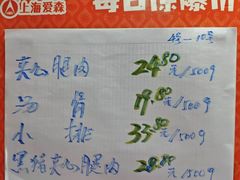 上海爱森
每日保爆价
4号-10号
夹心腿肉 24.80元/500g
汤骨 19.80元/500g
小排 35.80元/500g
黑猪夹心腿肉 28.80元/500g